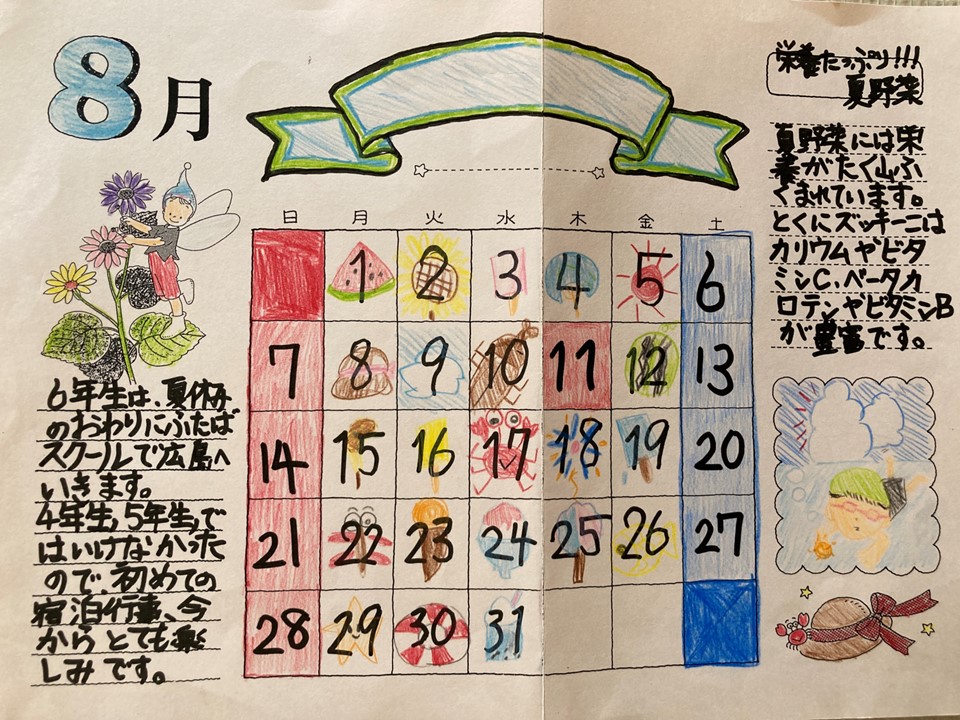 8月
栄養たっぷり!!!
夏野菜
夏野菜には栄
養がたく山ふ
くまれています。
とくにズッキーニは
カリウムやビタ
ミンC、ベータカ
ロテンやビタミンB
が豊富です。
日 月 火 水 木 金 土
1 2 3 4 5 6
7 8 9 10 11 12 13
14 15 16 17 18 19 20
21 22 23 24 25 26 27
28 29 30 31
6年生は、夏休み
のおわりにふたば
スクールで広島へ
いきます。
4年生,5年生,で
はいけなかった
ので、初めての
宿泊行事、今
からとても楽
しみです。